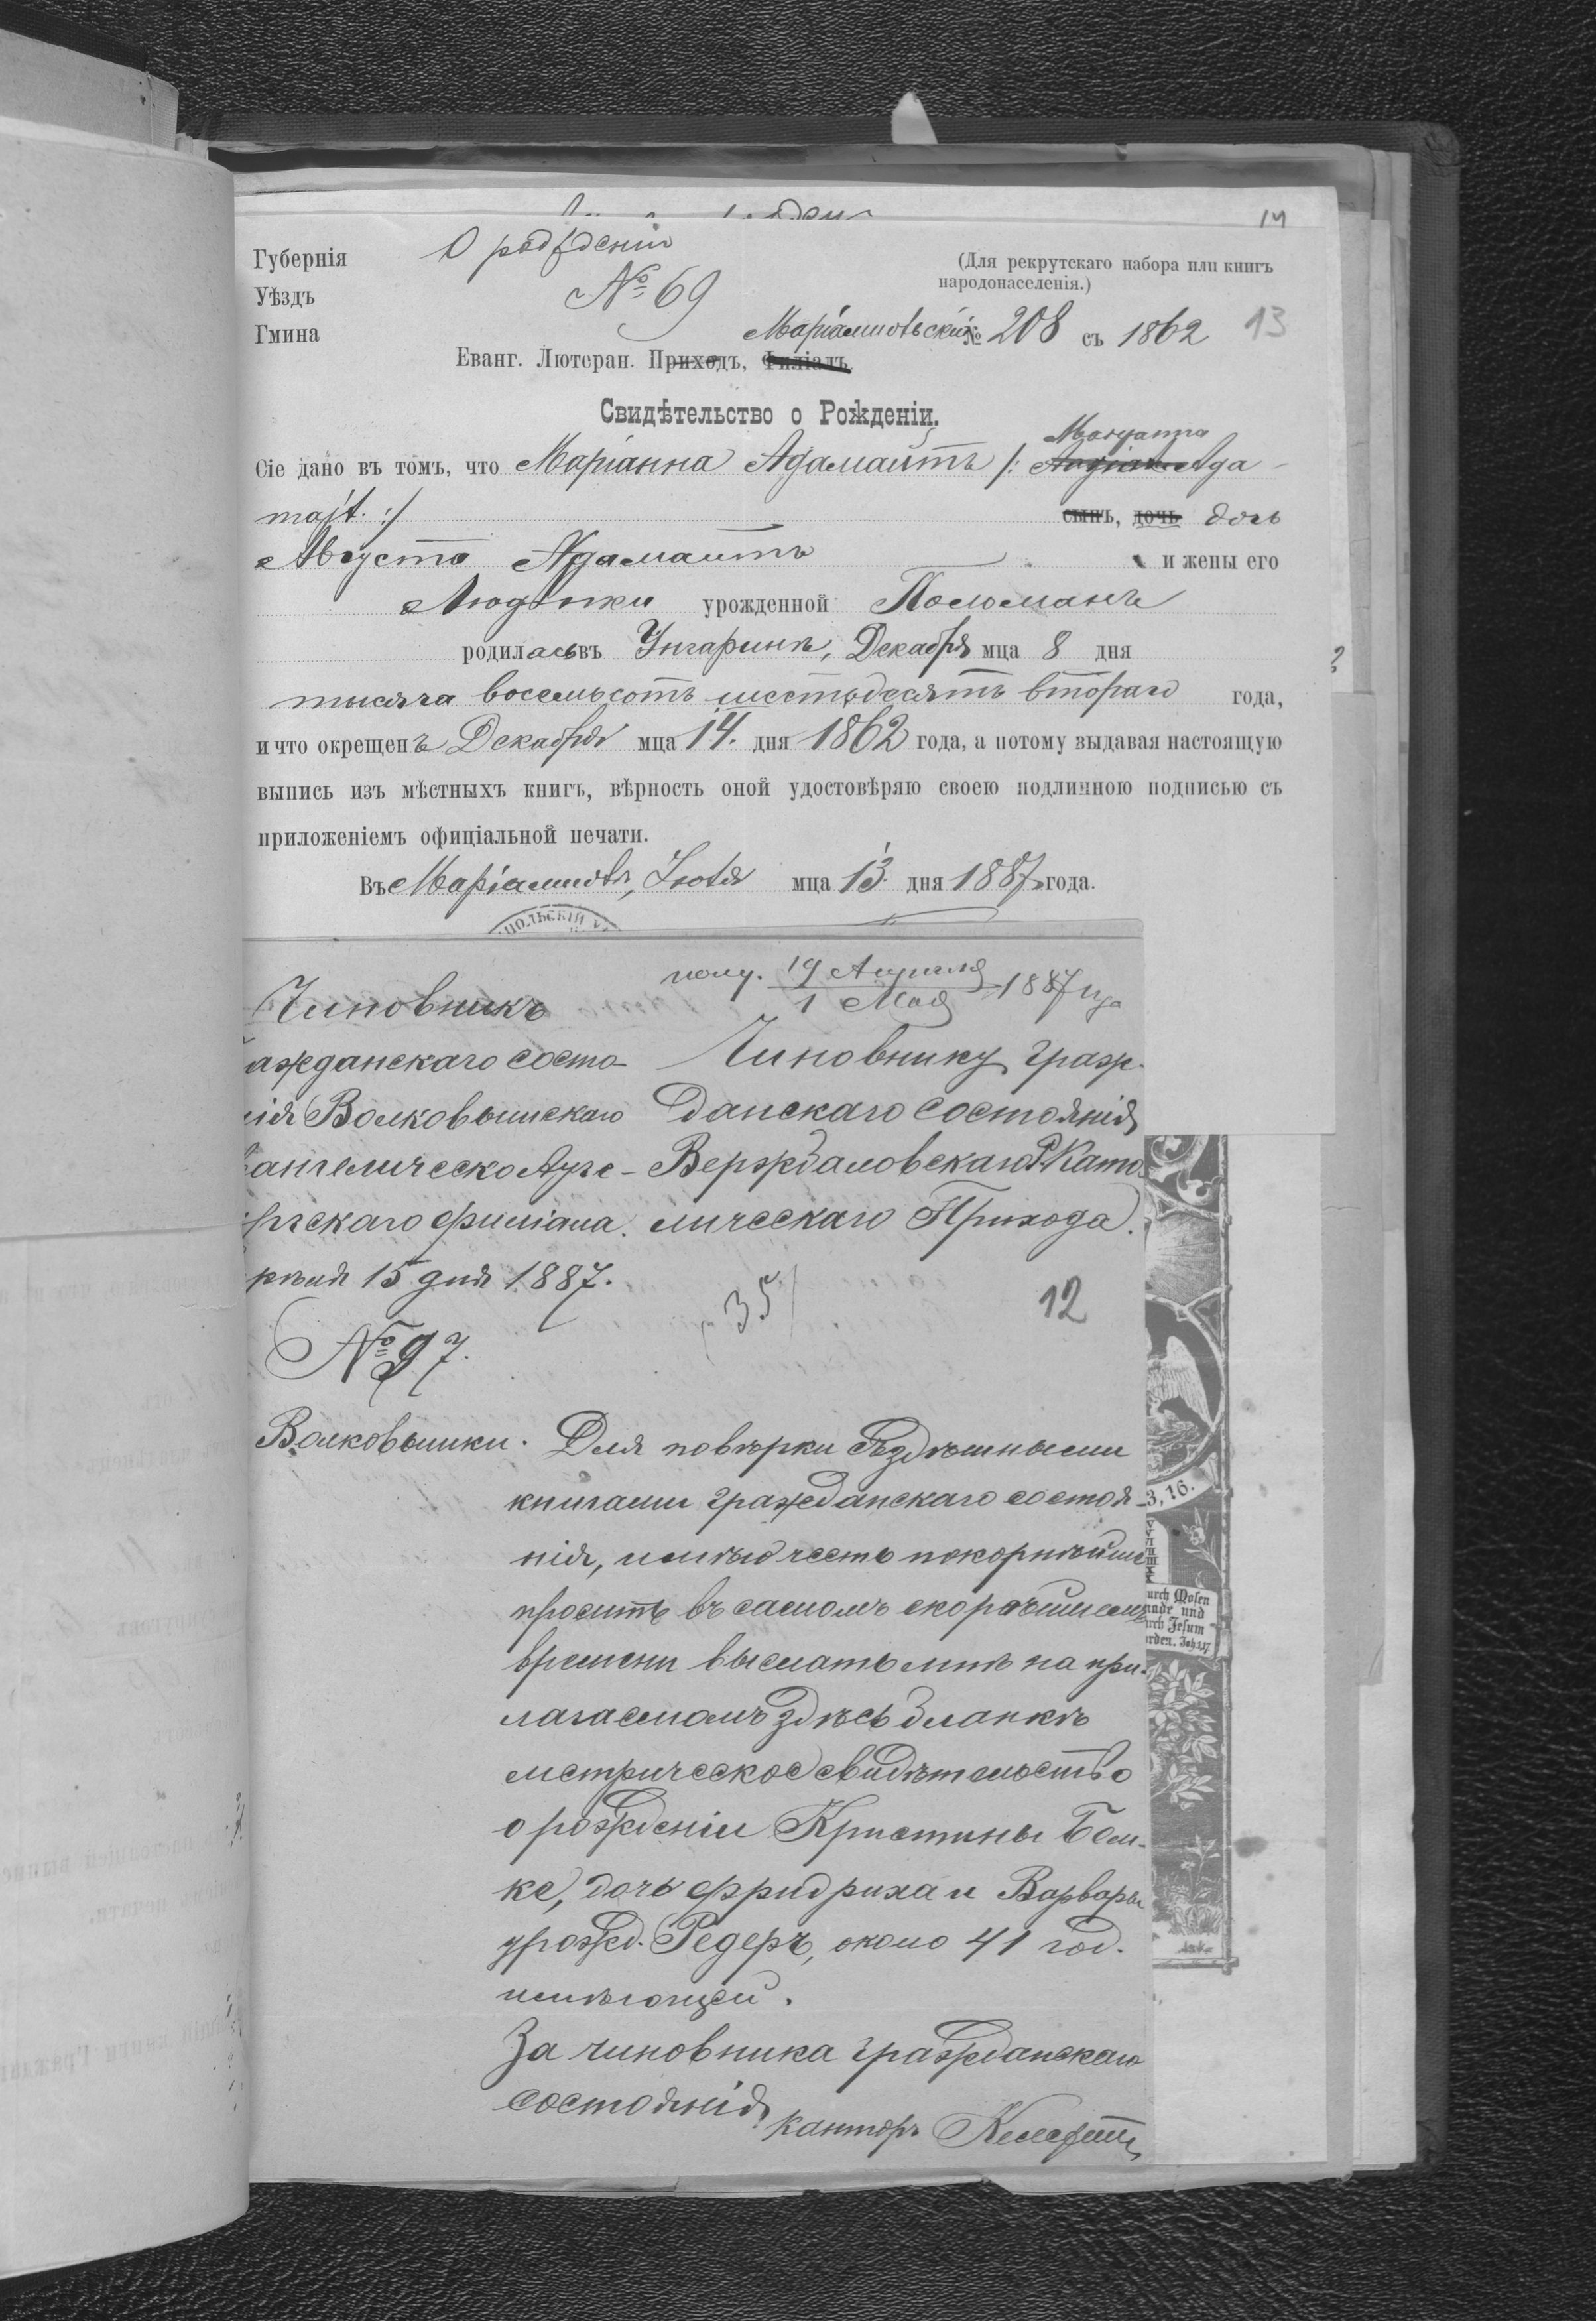 14
Губернія
О рожденіи
(Для рекрутскаго набора или книгъ
народонаселенія.)
Уѣздъ
№ 69
Гмина
Маріампольскій № 208 съ 1862 13
Еванг. Лютеран. Приходъ, Филіалъ
Свидѣтельство о Рожденіи.
Маryanna
Сіе дано въ томъ, что Маріанна Адамайтъ /: Ada-
majt :/ сынъ, дочь дочь
Августа Адамайтъ и жены его
урожденной
родилась въ Унгаринѣ, Декабря мца 8 дня
тысяча восемьсотъ шестьдесятъ втораго года,
и что окрещенъ Декабря мца 14. дня 1862 года, а потому выдавая настоящую
выпись изъ мѣстныхъ книгъ, вѣрность оной удостовѣряю своею подлинною подписью съ
приложеніемъ официальной печати.
Въ Маріамполѣ, Іюля мца 13. дня 1887 года.
польскій
полу. 19 Апреля 1887 года
1 Мая
Чиновникъ
ажданскаго состо-
нія Волковышскаго
ангелическо Ауге-
ргскаго филіала.
рѣля 15 дня 1887.
№ 97.
Волковышки.
Чиновнику граж-
данскаго состоянія
Вержболовскаго Р. Като
лическаго Прихода.
35
12
Для повѣрки съ здѣшными
книгами гражданскаго состоя-
нія, имѣю честь покорнѣйше
просить въ самомъ скорѣйшемъ
времени выслать мнѣ на при-
лагаемомъ здѣсь бланкѣ
метрическое свидѣтельство
о рожденіи Кристины Бем-
ке, дочь Фридриха и Варвары
урожд. Редеръ, около 41 год.
имѣющей.
За чиновника гражданскаго
состоянія
Канторъ
3, 16.
urch Mosen
nade und
urch Jesum
rden. Joh. 1, 17